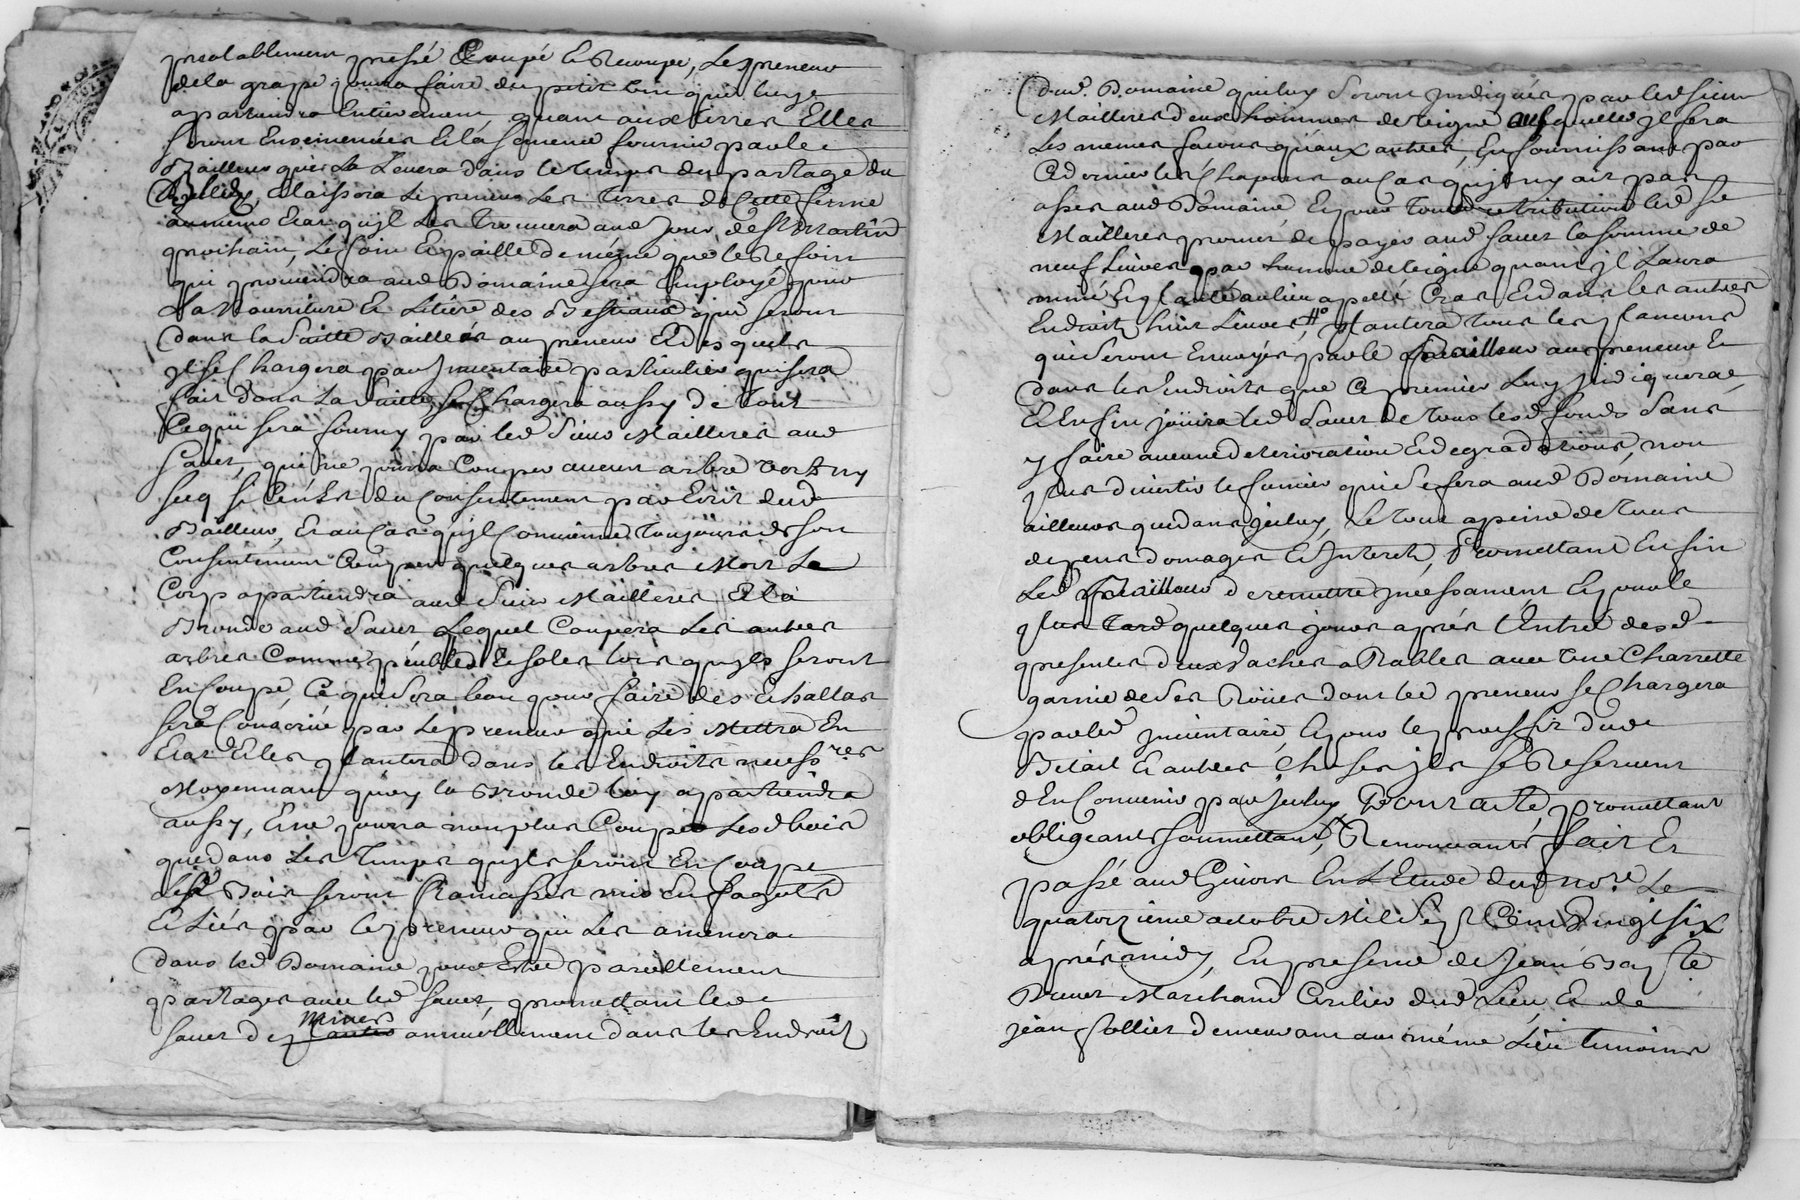 prealablement pressé Coupé et Recoupé, Le preneur
de la grape pourra faire du petit vin qui luy
apartiendra Entierement, quant aux terres Elles
seront Ensemencées Et la semence fournie par le
Bailleur qui La Levera dans le temps du partage du
Et laissera Le preneur Les terres de Cette ferme
au meme Etat qu'jl Les trouvera aud jour de St Martin
prochain, Le foin Et paille de méme que le Refoin
qui proviendra aud Domaine sera Employé pour
La Nourriture Et Litiére des Bestiaux qui seront
dans la suitte Baillés au preneur Et desquels
jl se Chargera par Jnventaire particulier qui sera
fait dans La suitte, se Chargera aussy de tout
Ce qui sera fourny par led Sieur Mailleres aud
Sauet, qui ne pourra Couper aucun arbre vert ny
secq si Ce n'est du Consentement par Ecrit dud
Bailleur, Et au Cas qu'jl Convienne toujours de son
Consentement Couper quelques arbres Mort Le
Corp apartiendra aud Sieur Mailleres Et la
Bronde aud Sauet Lequel Coupera Les autres
arbres Comme peubles Et soles lors qu'jls seront
En Coupe, Ce qui sera bon pour faire des Echallas
sera Conservé par Le preneur qui Les Mettra En
Etat Et les plantera dans les Endroits necessres
Moyennant quoy la Bronde luy apartiendra
aussy, Et ne pourra non plus Couper Lesd bois
que dans Les temps qu'jls seront En Coupe
Lesd Bois seront Ramassés mis en fagots
Et Liés par le preneur qui Les amenera
dans led Domaine pour Estre pareillement
partagés avec led Sauet, promettant led
miner
Sauet de planter annuellement dans les Endroits
dud. Domaine qui luy seront jndiqués par led sieur
Mailleres deux hommes de vigne ausquelles jl fera
Les memes façons qu'aux autres, En fournissant par
Ce dernier les Chapons au Cas qu'jl n'y ait pas
assés aud Domaine, Et pour toute retribution led sr
Mailleres promet de payer aud Sauet la somme de
neuf Livres par homme de vigne quant jl L'aura
miné Et planté au lieu apellé Cras Et dans les autres
Endroits huit Livres, Plantera tous les plancons
qui seront Envoyés par le Bailleur au preneur En
dans les Endroits que Ce premier Luy jndiquera,
Et Enfin joüira led Sauet de tous lesd fonds sans
y faire aucune deterioration Et degradations, non
plus divertir le fumier qui se fera aud Domaine
ailleurs que dans jceluy, Le tout a peine de tous
depens domages Et Jnterets, Promettant Enfin
Led Bailleur de remettre jncessament Et pour le
plus tard quelques jours aprés l'Entrée desd
presentes deux vaches arables avec une Charrette
garnie de ses Roües dont led preneur se Chargera
par led jnventaire, Et pour le proffit dud
Betail Et autres Choses jls se Reservent
d'En Convenir par jceluy Dont acte, promettant
obligeants soumettant, Renonceants fait Et
passé aud Givors En L'Etude dud nore Le
quatorzieme octobre Mil Sept Cent Vingt six
aprés midy, En presence de Jean Bapte
Marchand Cirilier dud Lieu Et de
jean Tollier demeurant au méme Lieu temoins